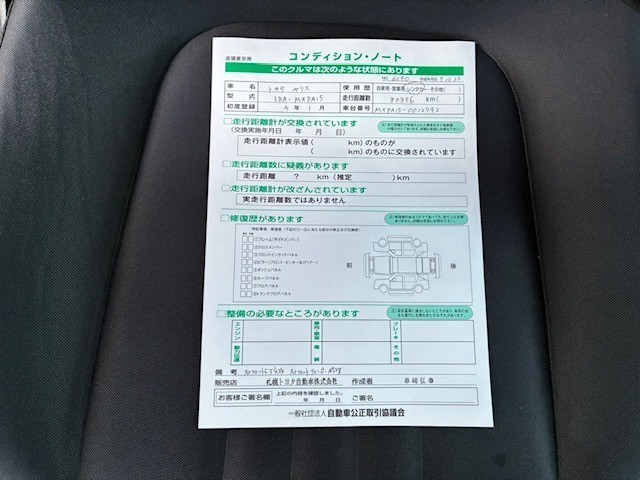 店頭表示用
コンディション・ノート
このクルマは次のような状態にあります
車名 トヨタ ヤリス 使用歴 自家用・営業用(レンタカー・その他)
型式 5BA-MXPA15 走行距離数 km
初度登録 4年1月 車台番号 MXPA15-0012942
走行距離計が交換されています
(交換実施年月日 年 月 日)
走行距離計表示値( km)のものが
( km)のものに交換されています
走行距離数に疑義があります
走行距離 ? km(推定 )km
走行距離計が改ざんされています
実走行距離数ではありません
修復歴があります
①フレーム(サイドメンバー)
②クロスメンバー
③フロントインサイドパネル
④ピラー(フロント・センター・及びリアー)
⑤ダッシュパネル
⑥ルーフパネル
⑦フロアパネル
⑧トランクフロアパネル
前
後
整備の必要なところがあります
エンジン
ブレーキ
動力伝達
電装
その他
備考
販売店 札幌トヨタ自動車株式会社 作成者
お客様ご署名欄 上記の内容を確認しました。
年 月 日 ご署名
一般社団法人 自動車公正取引協議会